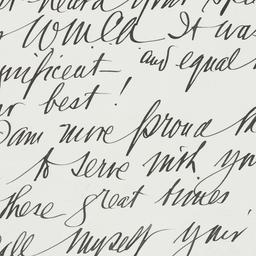 heard your
would It was
and equal
best!
am more proud
to serve with
these great times
myself your